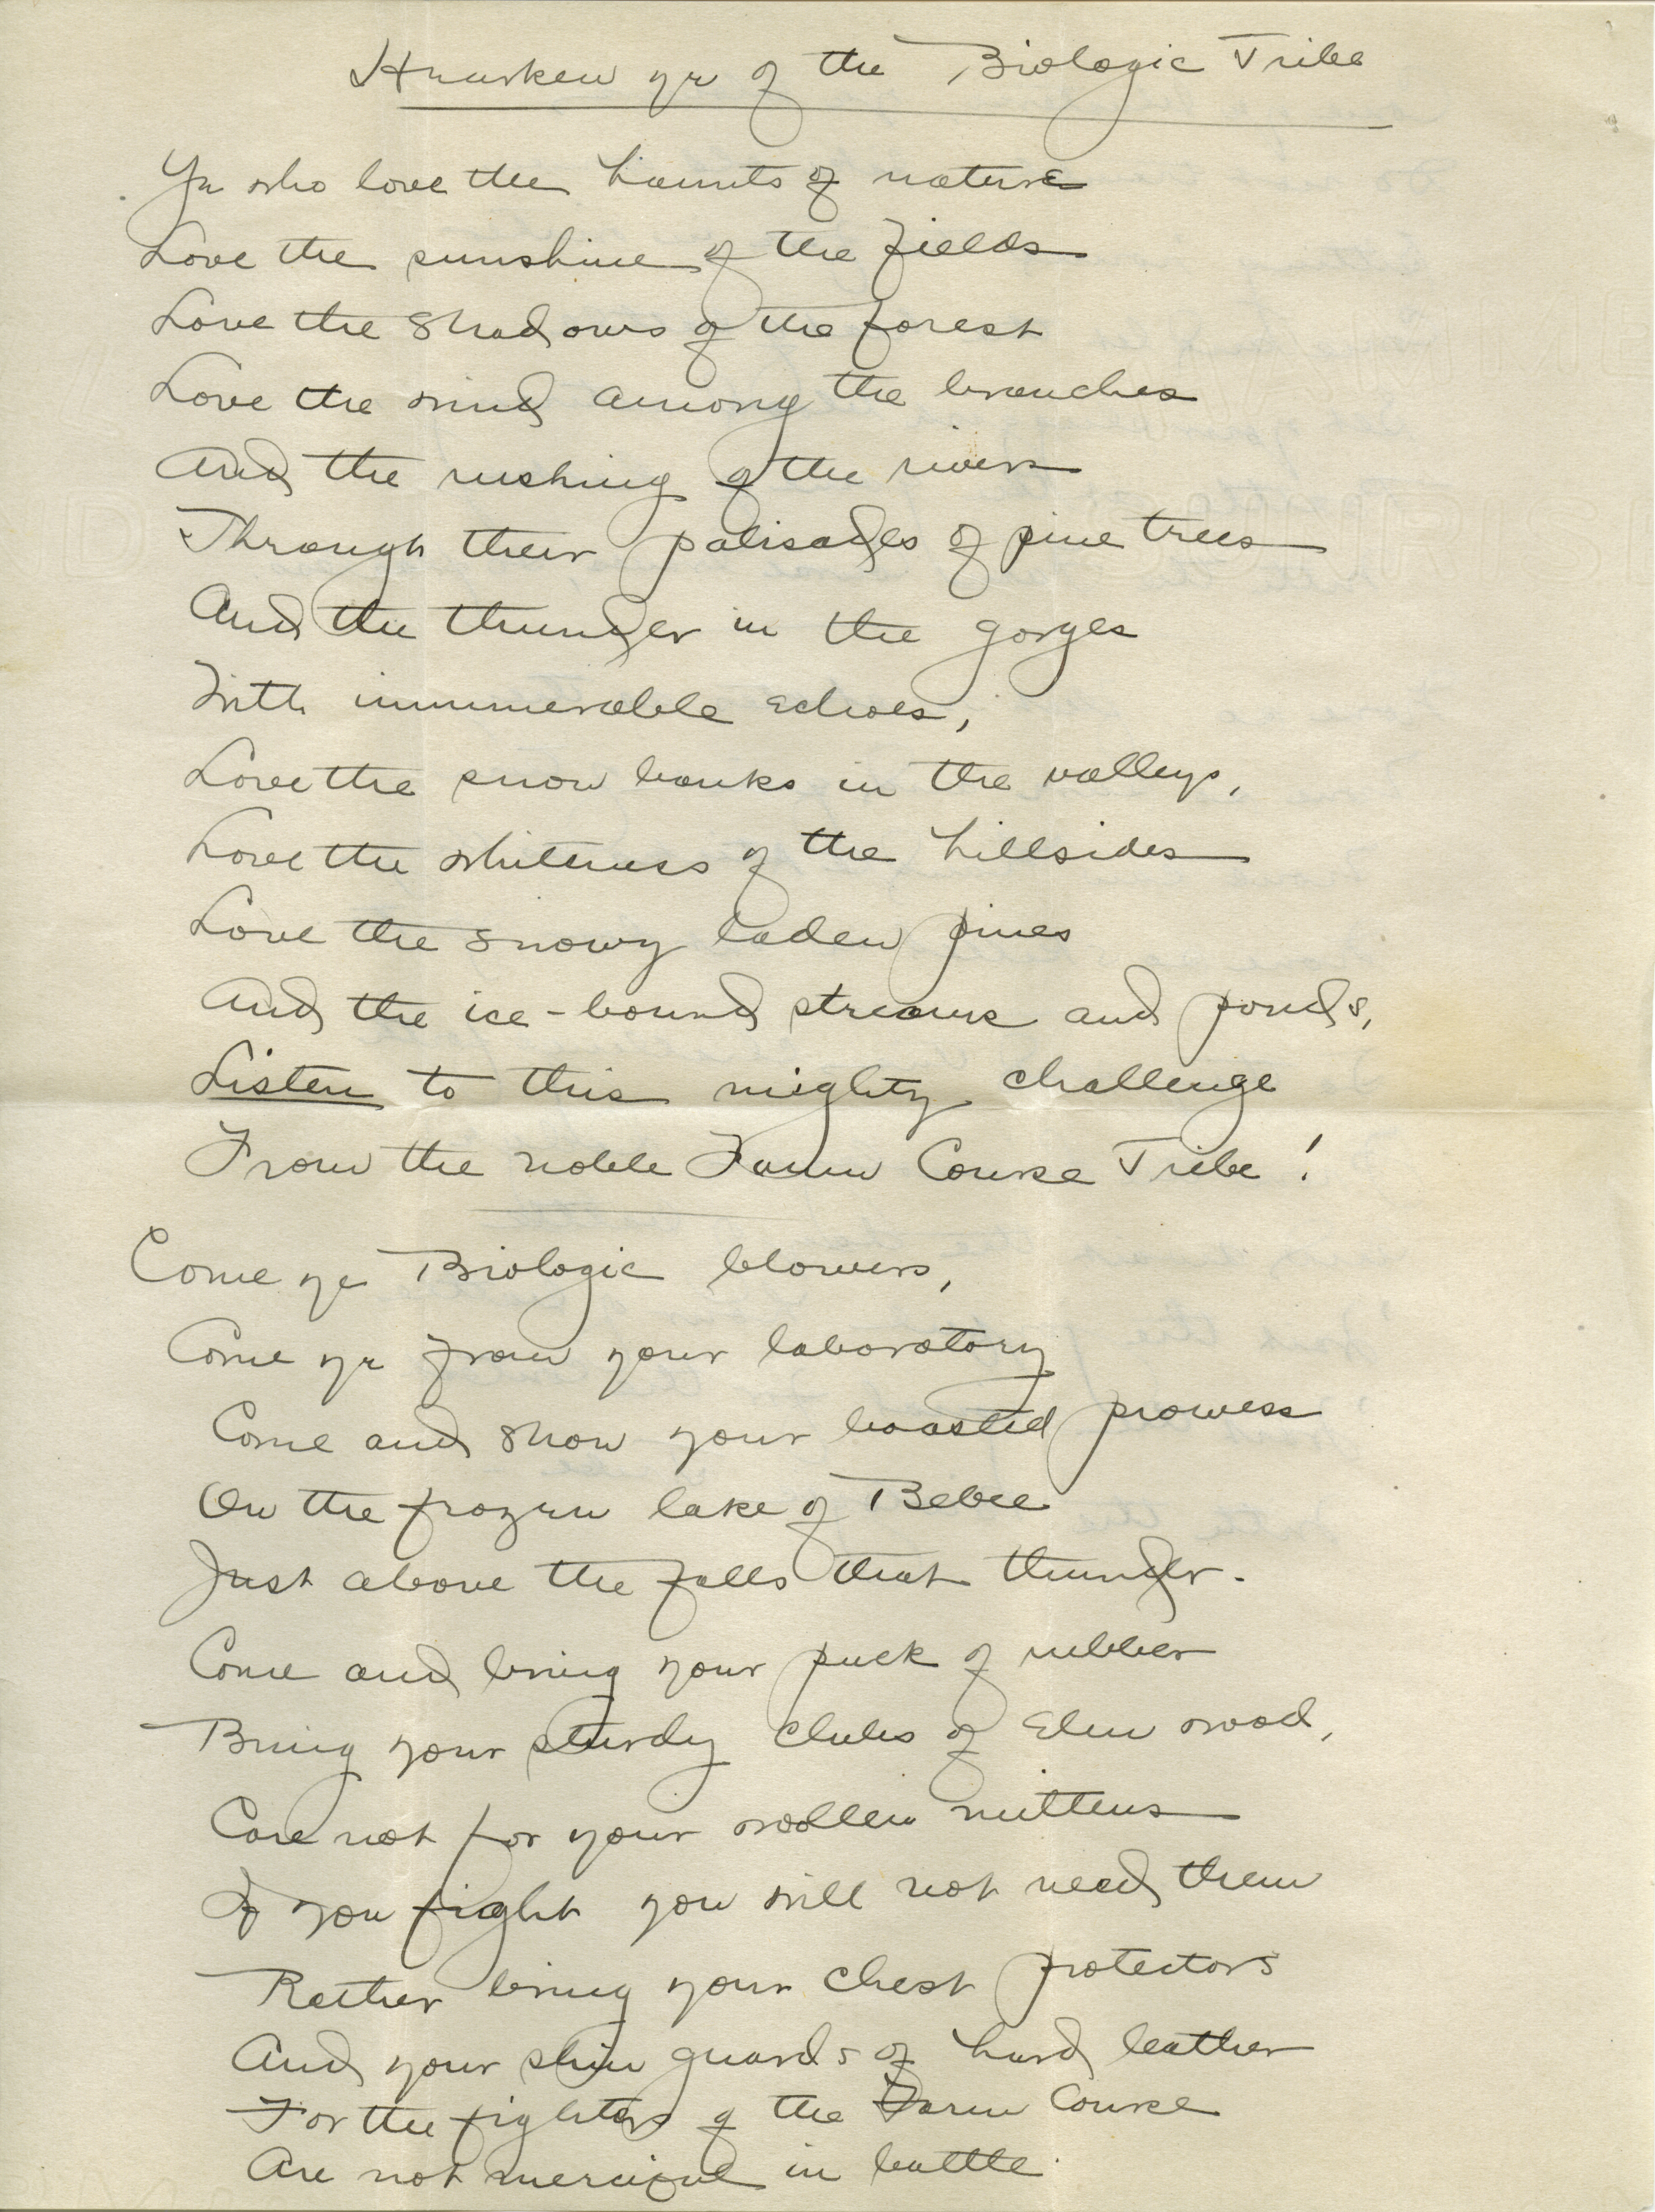 Hearken ye of the Biologic Tribe
Ye who love the haunts of nature
Love the sunshine of the fields
Love the shadows of the forest
Love the wind among the branches
And the rushing of the rivers
Through their palisades of pine trees
And the thunder in the gorges
With innumerable echoes,
Love the snow banks in the valleys,
Love the whiteness of the hillsides
Love the snowy laden pines
And the ice-bound streams and ponds,
Listen to this mighty challenge
From the noble Farm Course Tribe!
Come ye Biologic blowers,
Come ye from your laboratory
Come and show your boasted prowess
On the frozen lake of Bebee
Just above the falls that thunder.
Come and bring your puck of rubber
Bring your sturdy clubs of Elm wood,
Care not for your wollen mittens
If you fight you will not need them
Rather bring your chest protectors
And your shin guards of hard leather
For the fighters of the Farm Course
Are not merciful in battle.